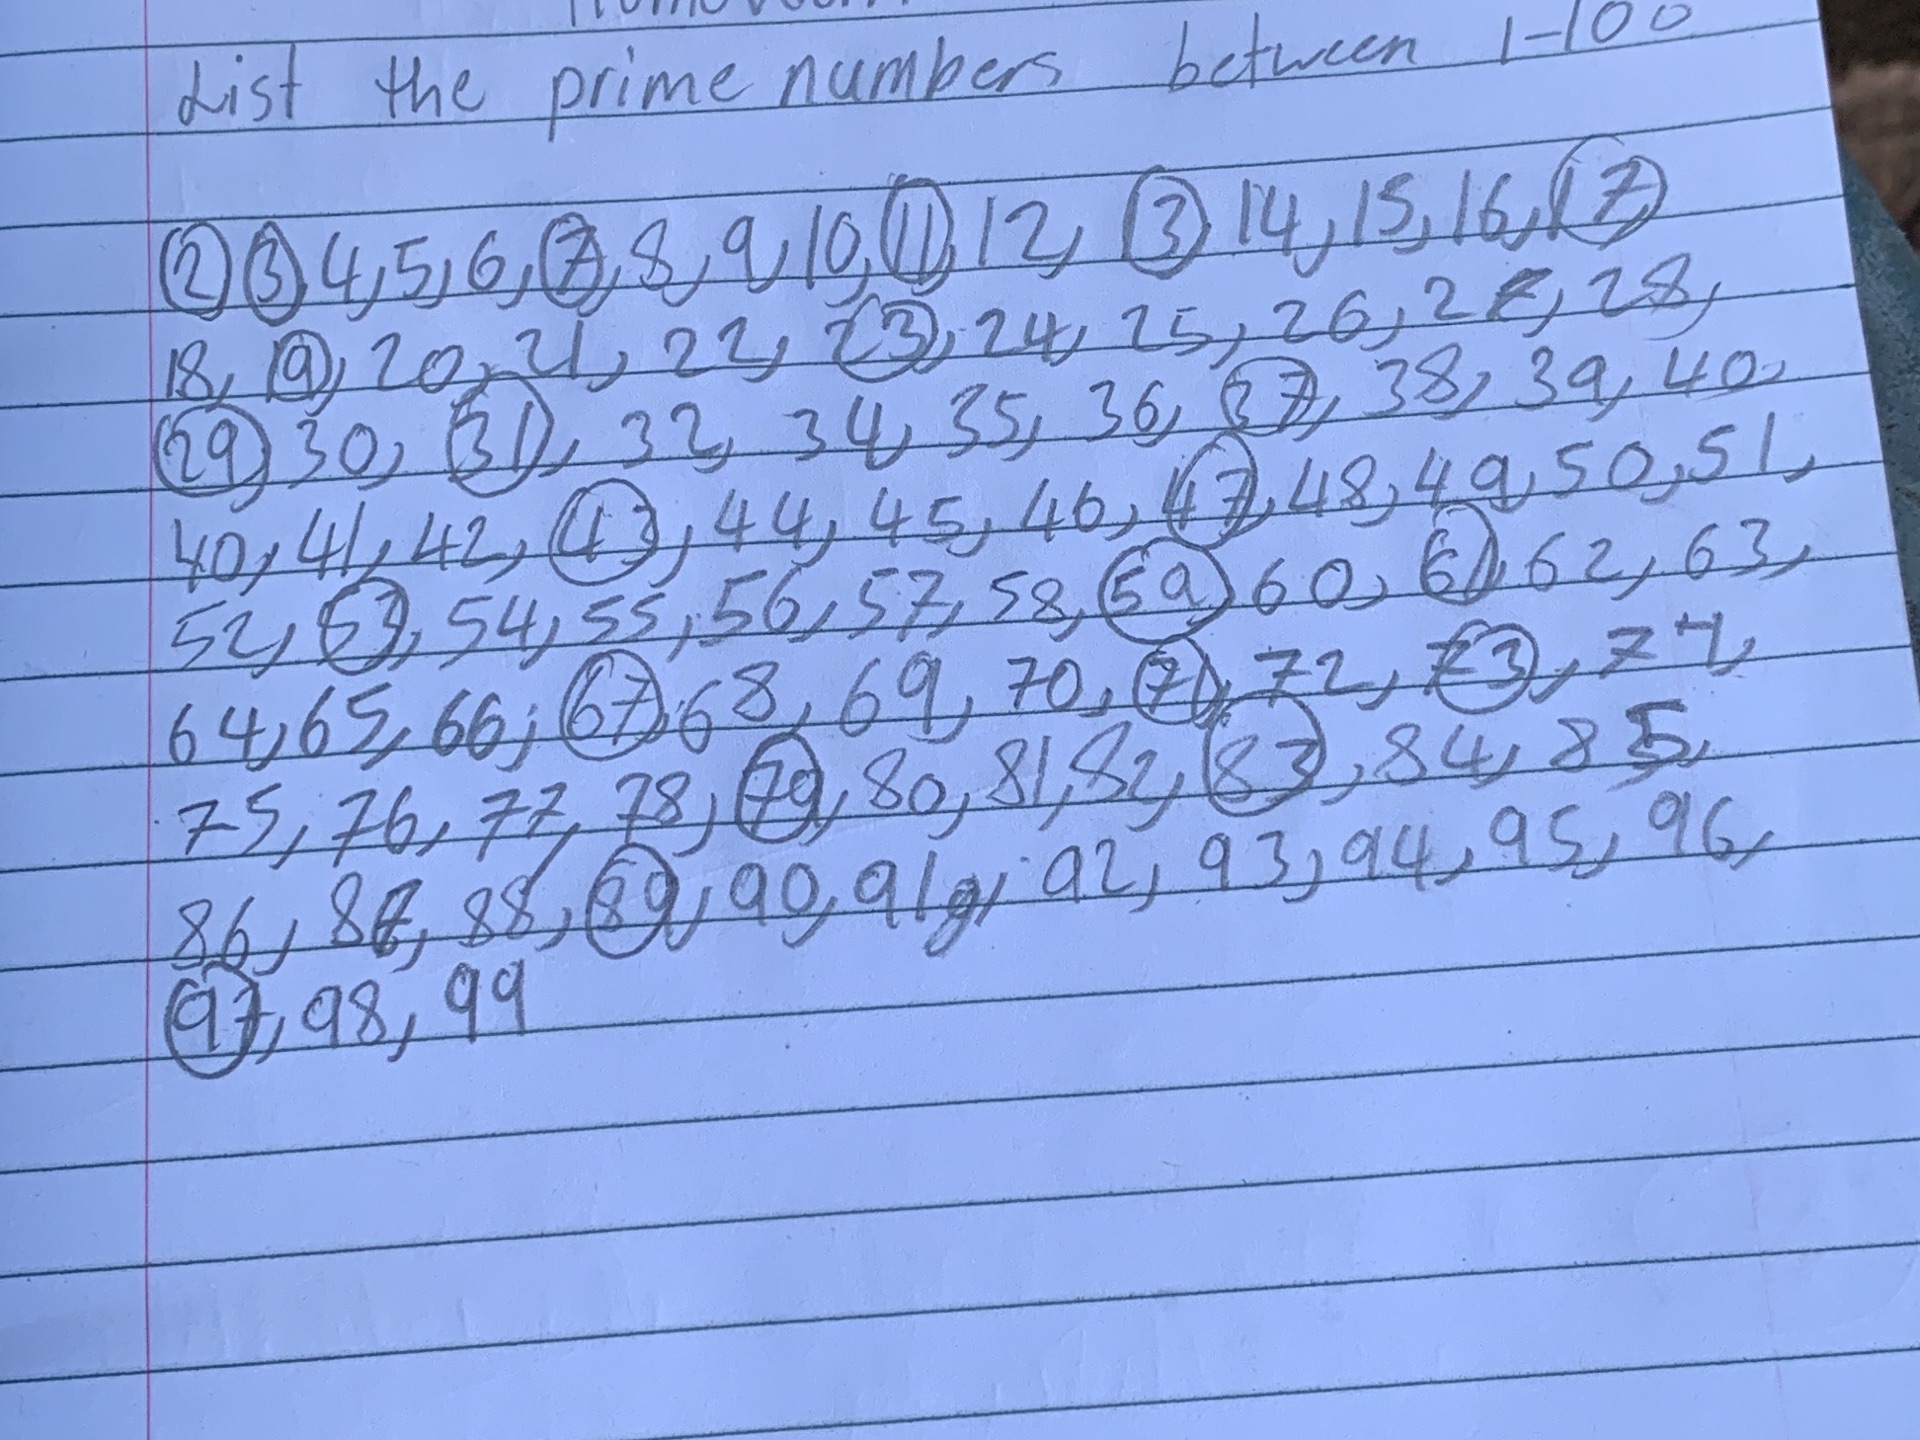 List the prime numbers between 1-100
2 3 4, 5, 6, 7, 8, 9, 10, 11, 12, 13 14, 15, 16, 17
18, 19, 20, 21, 22, 23, 24, 25, 26, 27, 28,
29, 30, 31, 32, 34, 35, 36, 37, 38, 39, 40,
40, 41, 42, 43, 44, 45, 46, 47, 48, 49, 50, 51,
52, 53, 54, 55, 56, 57, 58, 59, 60, 61, 62, 63,
64, 65, 66, 67, 68, 69, 70, 71, 72, 73, 74,
75, 76, 77, 78, 79, 80, 81, 82, 83, 84, 85,
86, 87, 88, 89, 90, 91, 92, 93, 94, 95, 96,
97, 98, 99